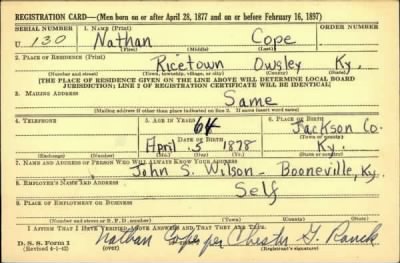 REGISTRATION CARD—(Men born on or after April 28, 1877 and on or before February 16, 1897)
SERIAL NUMBER 1. NAME (Print) ORDER NUMBER
U 130 Nathan Cope
(First) (Middle) (Last)
2. PLACE OF RESIDENCE (Print)
Ricetown Owsley Ky.
(Number and street) (Town, township, village, or city) (County) (State)
[THE PLACE OF RESIDENCE GIVEN ON THE LINE ABOVE WILL DETERMINE LOCAL BOARD
JURISDICTION; LINE 2 OF REGISTRATION CERTIFICATE WILL BE IDENTICAL]
3. MAILING ADDRESS
Same
[Mailing address if other than place indicated on line 2. If same insert word same]
4. TELEPHONE 5. AGE IN YEARS 6. PLACE OF BIRTH
64 Jackson Co.
DATE OF BIRTH (Town or county)
April 5 1878 Ky.
(Exchange) (Number) (Mo.) (Day) (Yr.) (State or country)
7. NAME AND ADDRESS OF PERSON WHO WILL ALWAYS KNOW YOUR ADDRESS
John S. Wilson - Booneville, Ky.
8. EMPLOYER'S NAME AND ADDRESS
Self
9. PLACE OF EMPLOYMENT OR BUSINESS
(Number and street or R. F. D. number) (Town) (County) (State)
I AFFIRM THAT I HAVE VERIFIED ABOVE ANSWERS AND THAT THEY ARE TRUE.
D. S. S. Form 1 Nathan Cope per Chester G.
(Revised 4-1-42) (over) (Registrant's signature)